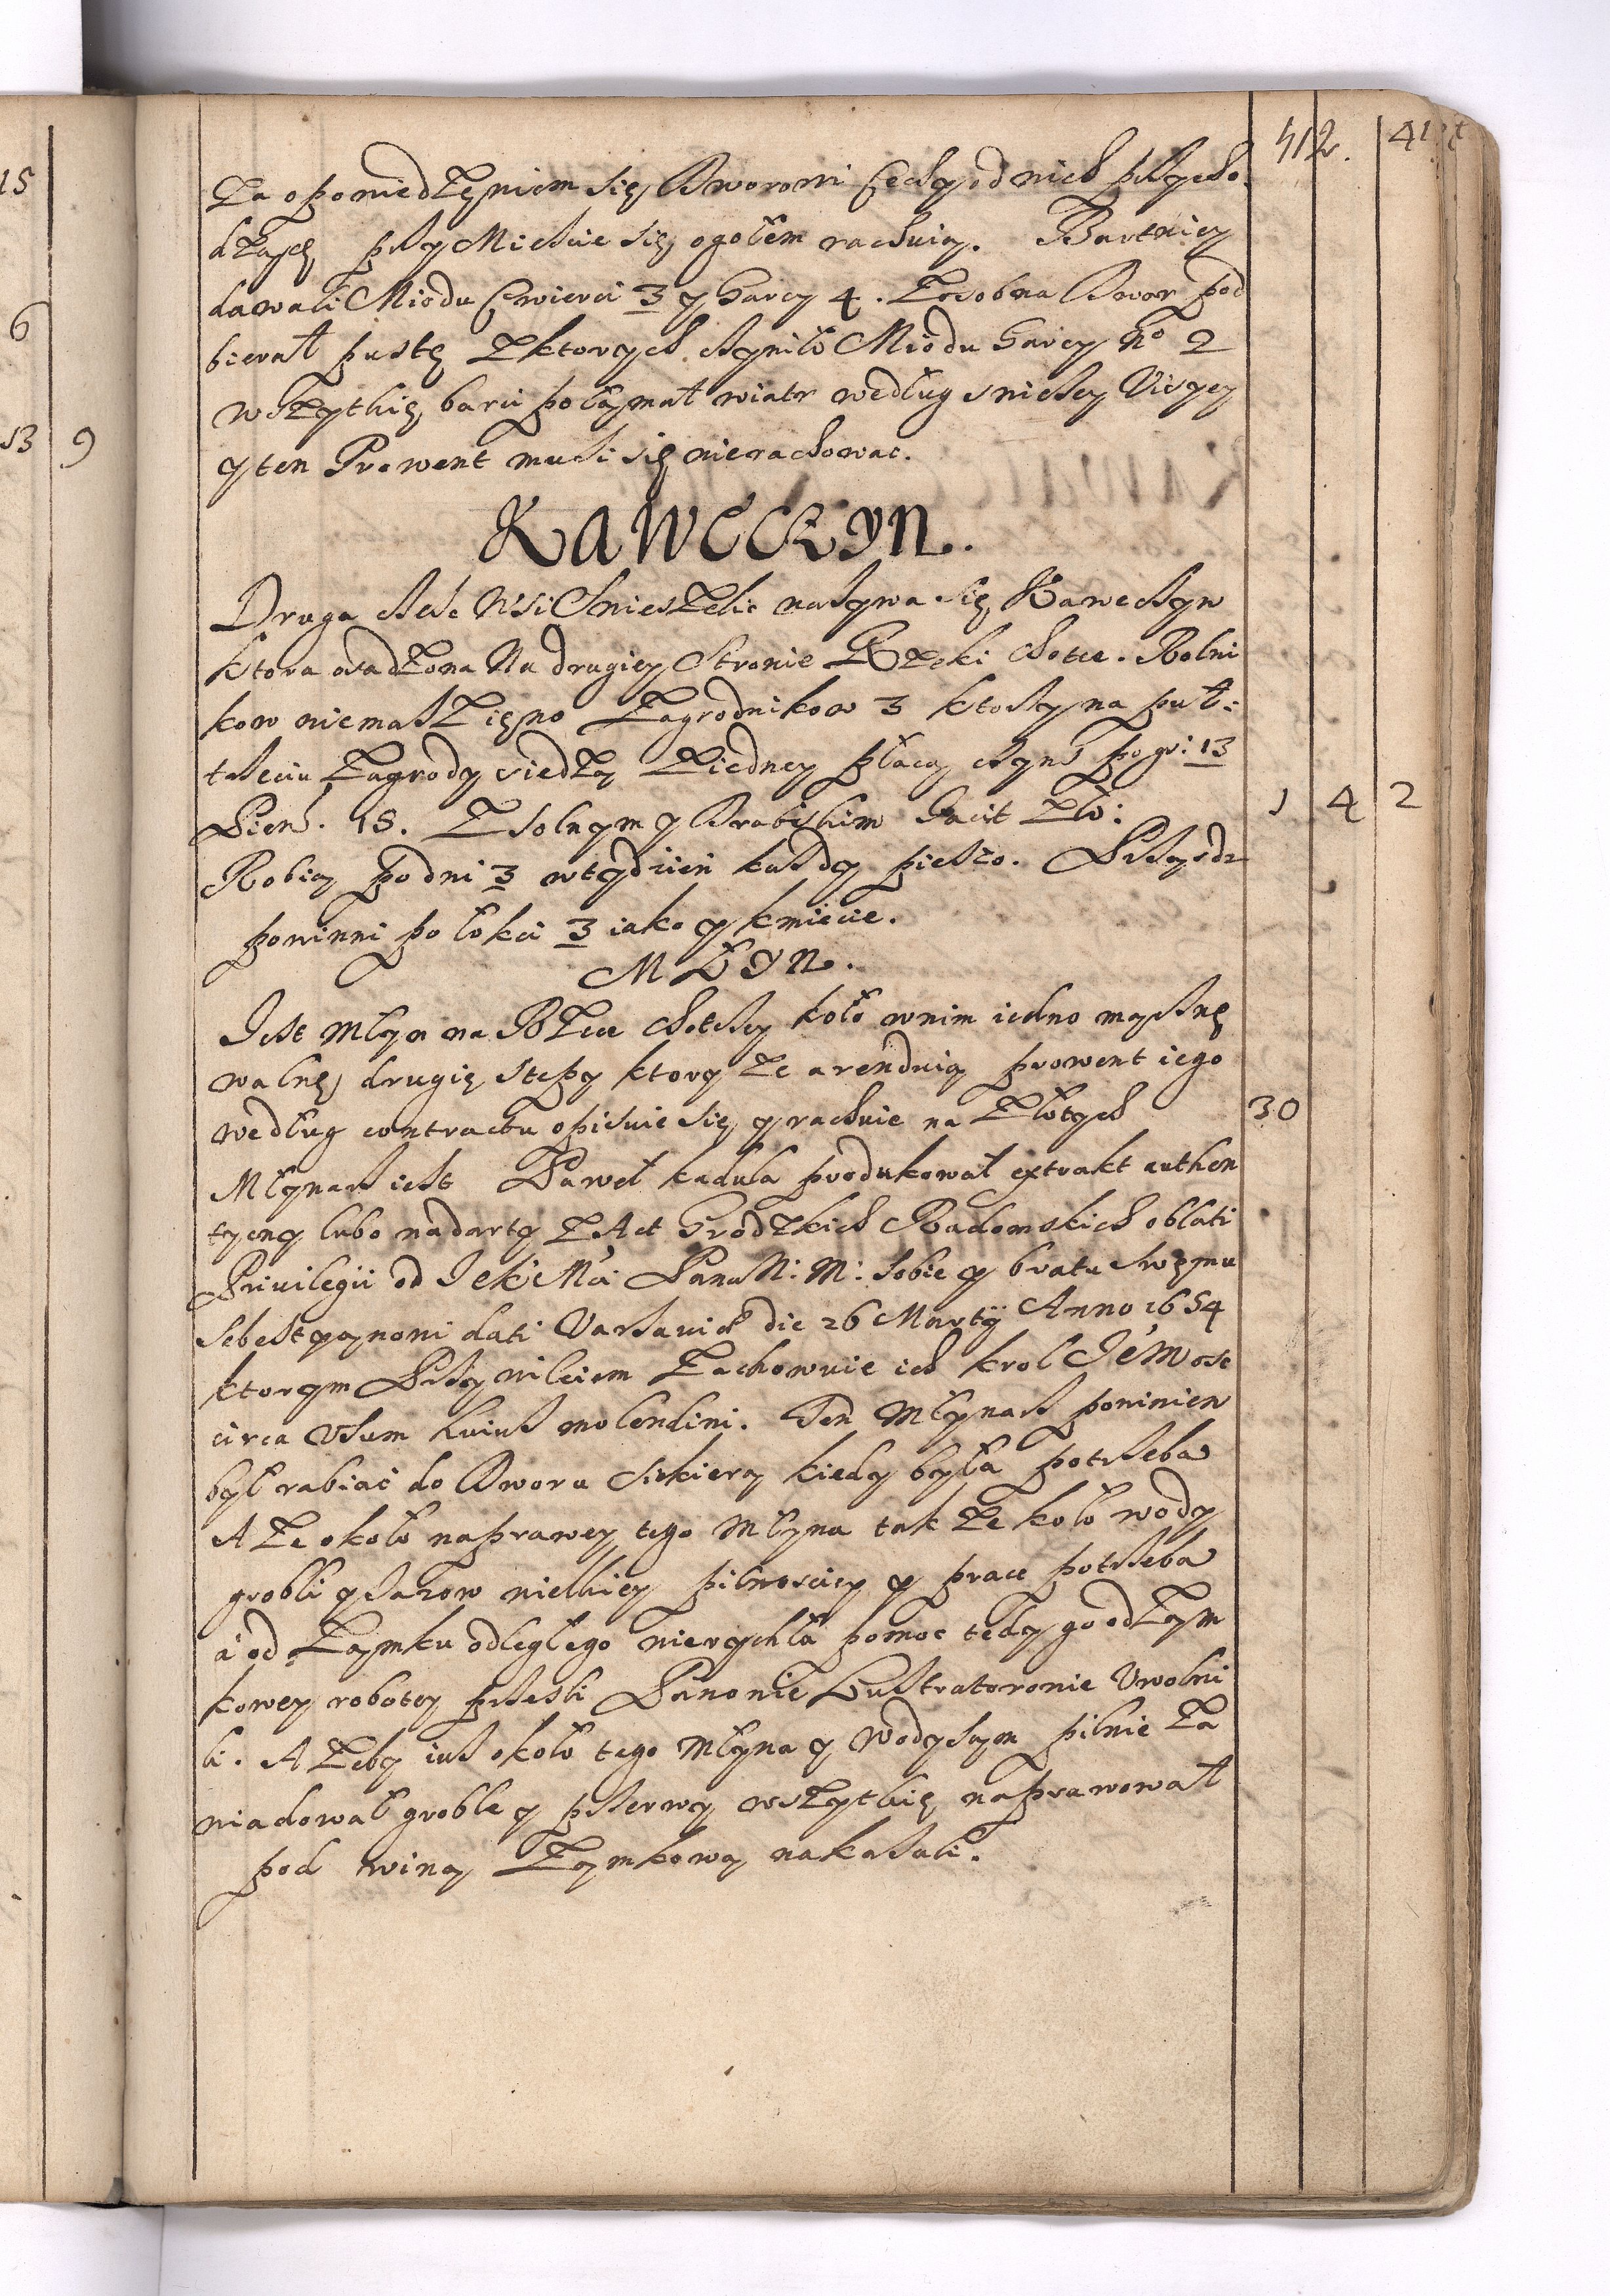 412. 41
15
6
13 9
Za opowiedzęniem się Dworowi Cechy od nich przycho
dząsę przy Mieście się ogołem rachuią. Bartnicy
dawali Miodu Cwierci 3 y Garcy 4. Zosobna Dwor pod
bierał pustę z ktorych czyniło Miodu Garcy No 2
wszytkię barci połąmał wiatr według snieskey Visyey
y ten Prowent musi się nierachowac.
KAWECZYN.
Druga częśc Wsi Snieszekie nazywa się Kaweczyn
ktora osadzona Na drugiey Stronie Rzeki Chotce. Rolni
kow niemasz ięno Zagrodnikow 3 ktorzy na puł:
trzeciu Zagrody siedzą Ziedney płacą czyns po gr: 13
Pien. 15. Z solnym y Drabskim facit Zło: 1 4 2
Robią po dni 3 wtydzień kazdy pieszo. Przysdz
powinni po łokci 3 iako y kmiecie.
MŁYN.
Jest Młyn na Rzece Chotczy koło wnim iedno mącznę
walnę, drugię stępy ktory ze arenduią prowent iego
według contractu opisuie się y rachuie na Złotych 30
Młynarz iest Paweł Kadula produkował extrakt authen
tycny lubo nadarty z Act Grodzkich Radomskich oblati
Privilegii od Je K Mci Pana N: M: sobie y bratu swęmu
Sebestyąnowi dati Varsaviæ die 26 Martÿ Anno 1654
ktorym Przywileiem Zachowuie ich krol Je Mosc
circa Usum huius molendini. Ten Młynarz powinien
był rabiać do Dworu Siekierą kiedy była potrzeba
A że około naprawey tego Młyna tak że koło wody
grobli y Jazow wielkiey pilnosciey y prace potrzeba
a od Zamku odległego nierychła pomoc tedy go od Zam
kowey robotey przeszli Panowie Lustratorowie Uwolni
li. A żeby iuż około tego Młyna y wody sąm pilnie za
wiadował groble y przerwy wszytkię naprawował
pod winą Zamkową nakazali.